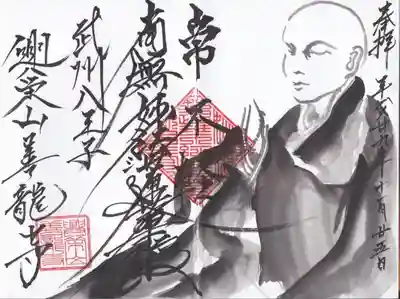 奉拝 平成廿九年十月廿五日
常不
南無妙法蓮華経
武州八王子
栄山善龍寺